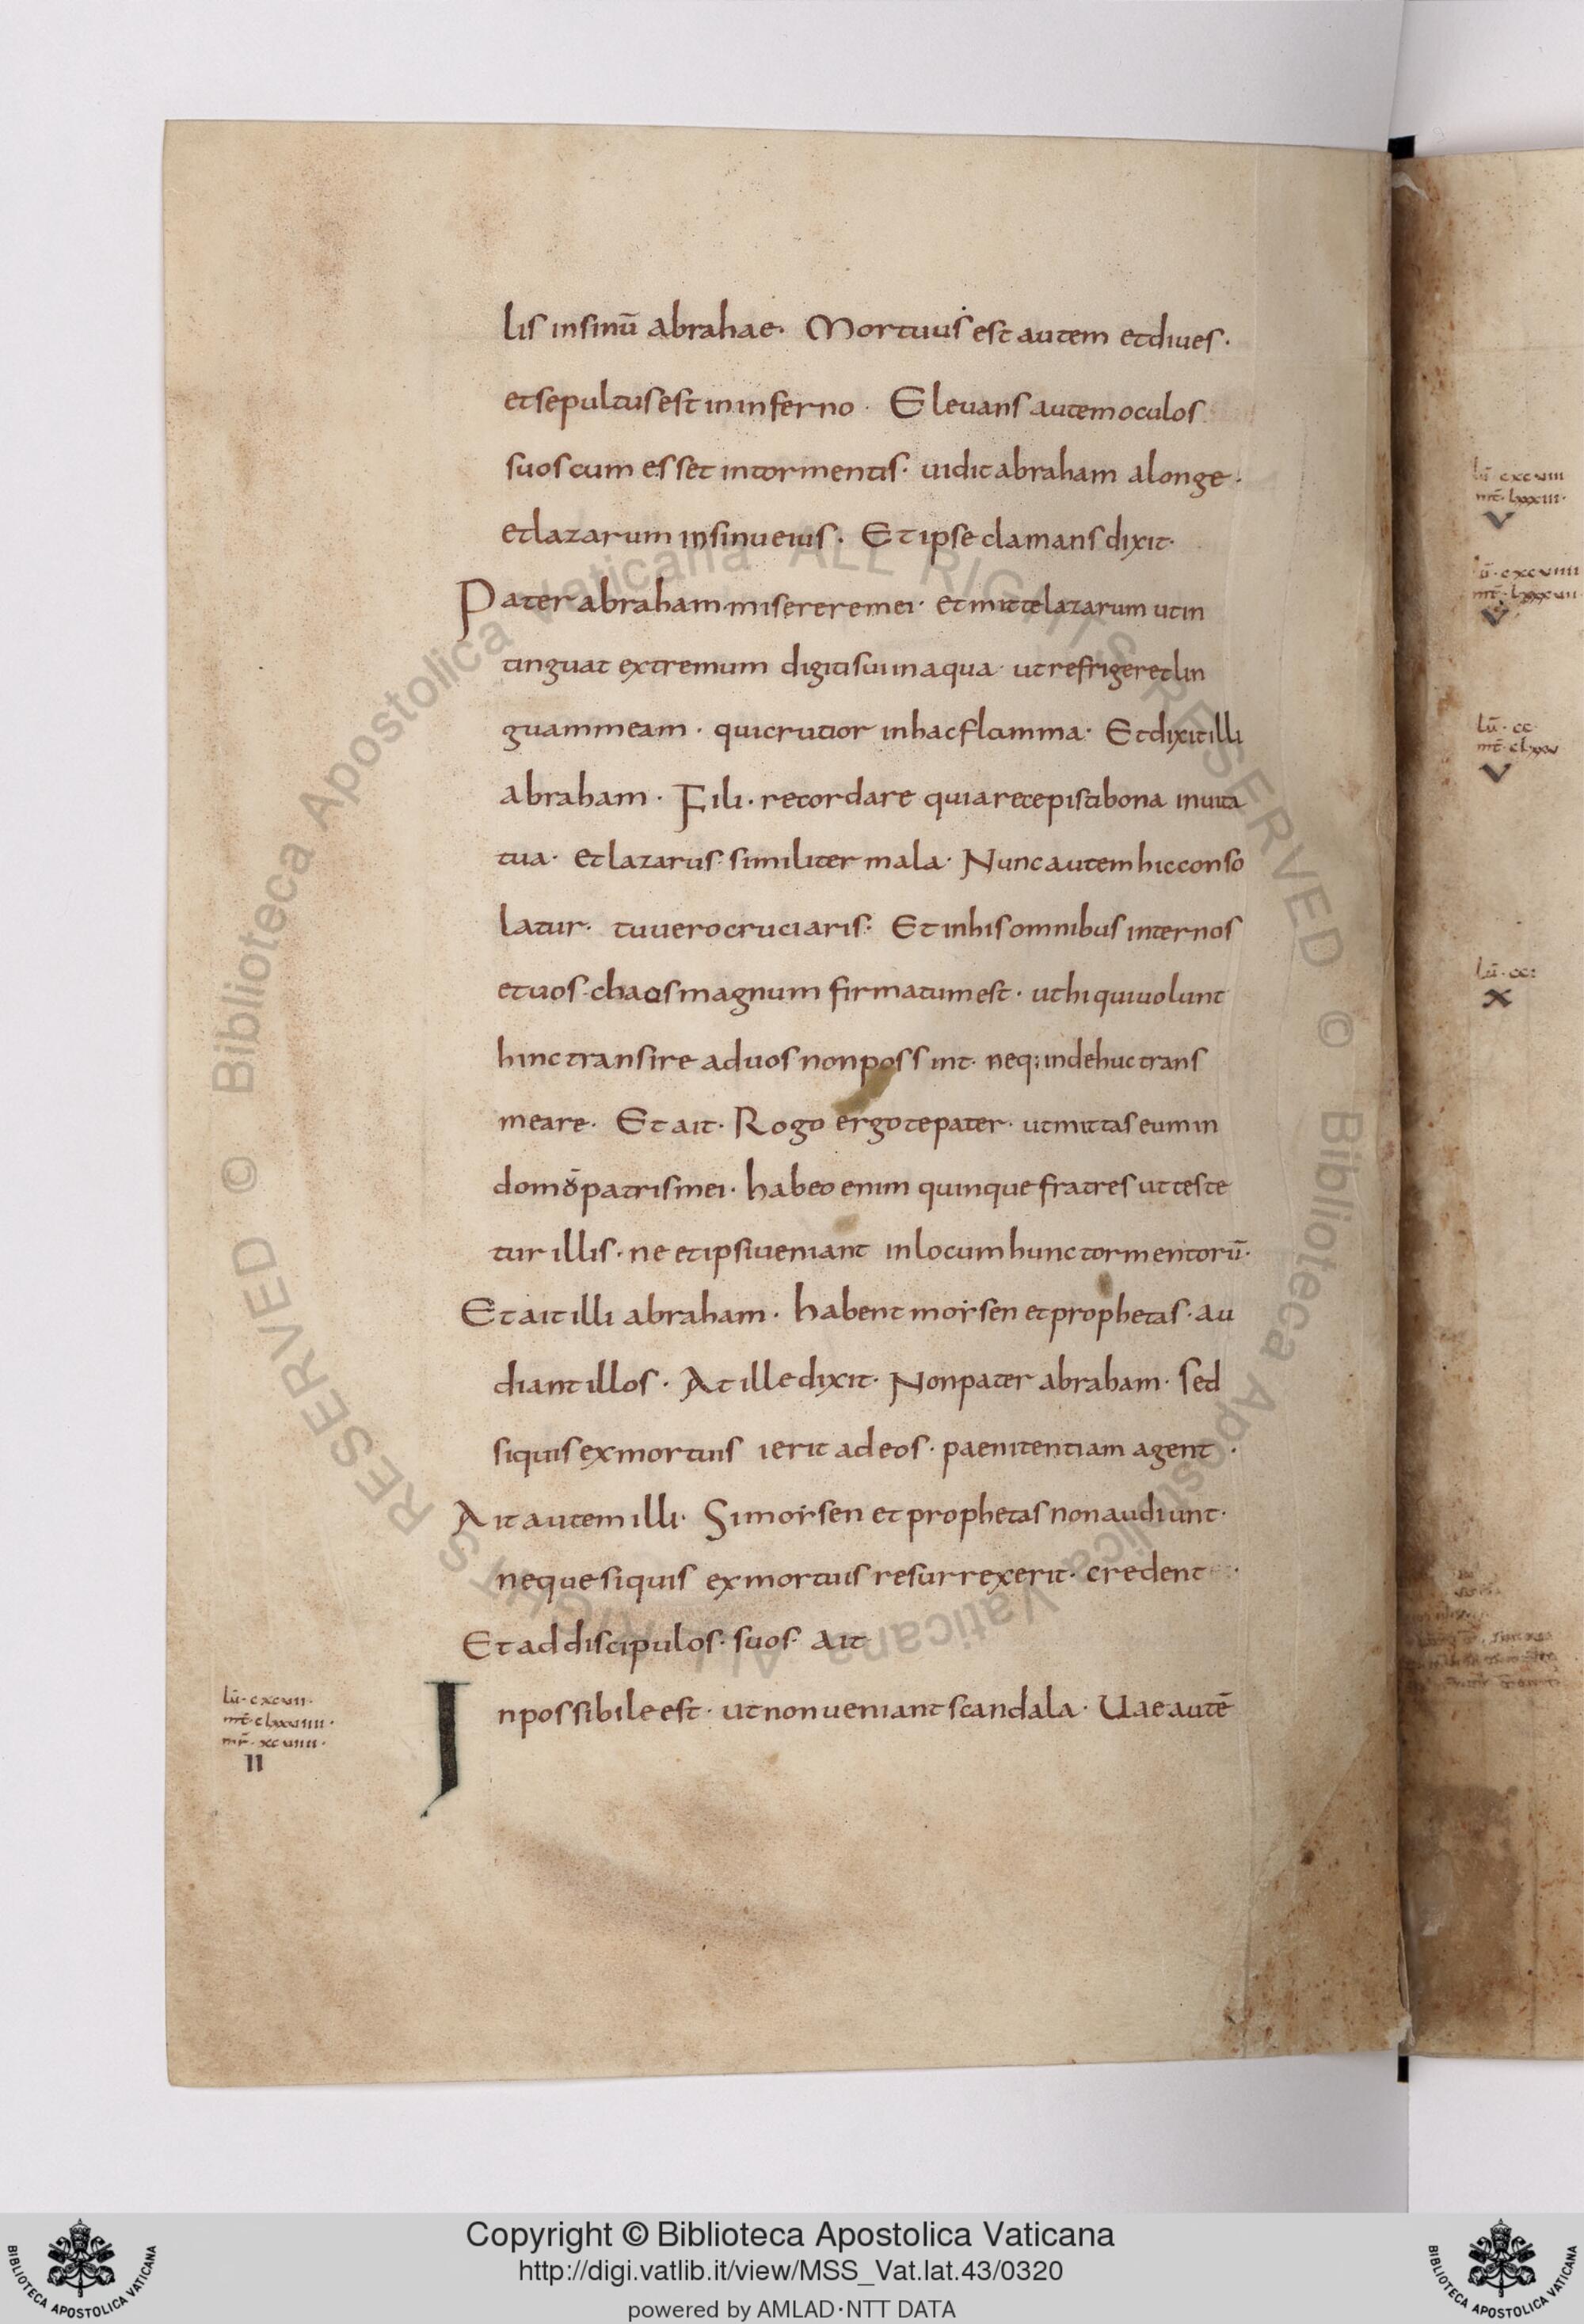 lis insinū abrahae· Mortuus est autem et diues·
et sepultus est in inferno· Eleuans autem oculos
suos cum esset in tormentis· uidit abraham alonge·
et lazarum insinu eius· Et ipse clamans dixit·
Pater abraham miserere mei· et mitte lazarum ut in
tinguat extremum digiti sui in aqua· ut refrigeret lin
guam meam· qui crucior in hac flamma· Et dixit illi
abraham· Fili· recordare quia recepisti bona inuita
tua· et lazarus· similiter mala· Nunc autem hic conso
latur· tu uero cruciaris: Et inhis omnibus inter nos
et uos· chaos magnum firmatum est· ut hi qui uolunt
hinc transire ad uos non possint· neq; inde huc trans
meare· Et ait· Rogo ergo te pater· ut mittas eum in
domō patris mei· habeo enim quinque fratres ut teste
tur illis· ne et ipsi ueniant in locum hunc tormentorū·
Et ait illi abraham· habent mosen et prophetas· au
diant illos· At ille dixit· Non pater abraham· sed
si quis ex mortuis ierit ad eos· paenitentiam agent·
Ait autem illi· Si mosen et prophetas non audiunt·
neque si quis ex mortuis resurrexerit· credent·
Et ad discipulos· suos· ait
Inpossibile est· ut non ueniant scandala· Uae autē
lū· cxcvii·
mt̄· clxxviiii·
mr̄· xcviiii·
II
lū· cxcviii
mt̄· lxxxiii·
V
lū· cxcviiii
V
lū· cc·
mt̄· clxxv
V
lū· cci
X
© Biblioteca Apostolica Vaticana ALL RIGHTS RESERVED © Biblioteca Apostolica Vaticana ALL RIGHTS RESERVED
Copyright © Biblioteca Apostolica Vaticana
http://digi.vatlib.it/view/MSS_Vat.lat.43/0320
powered by AMLAD·NTT DATA
BIBLIOTECA APOSTOLICA VATICANA
BIBLIOTECA APOSTOLICA VATICANA